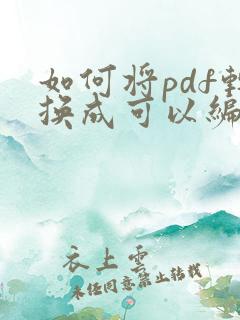 如何将pdf转
换成可以编
衣上云
未经同意禁止转载